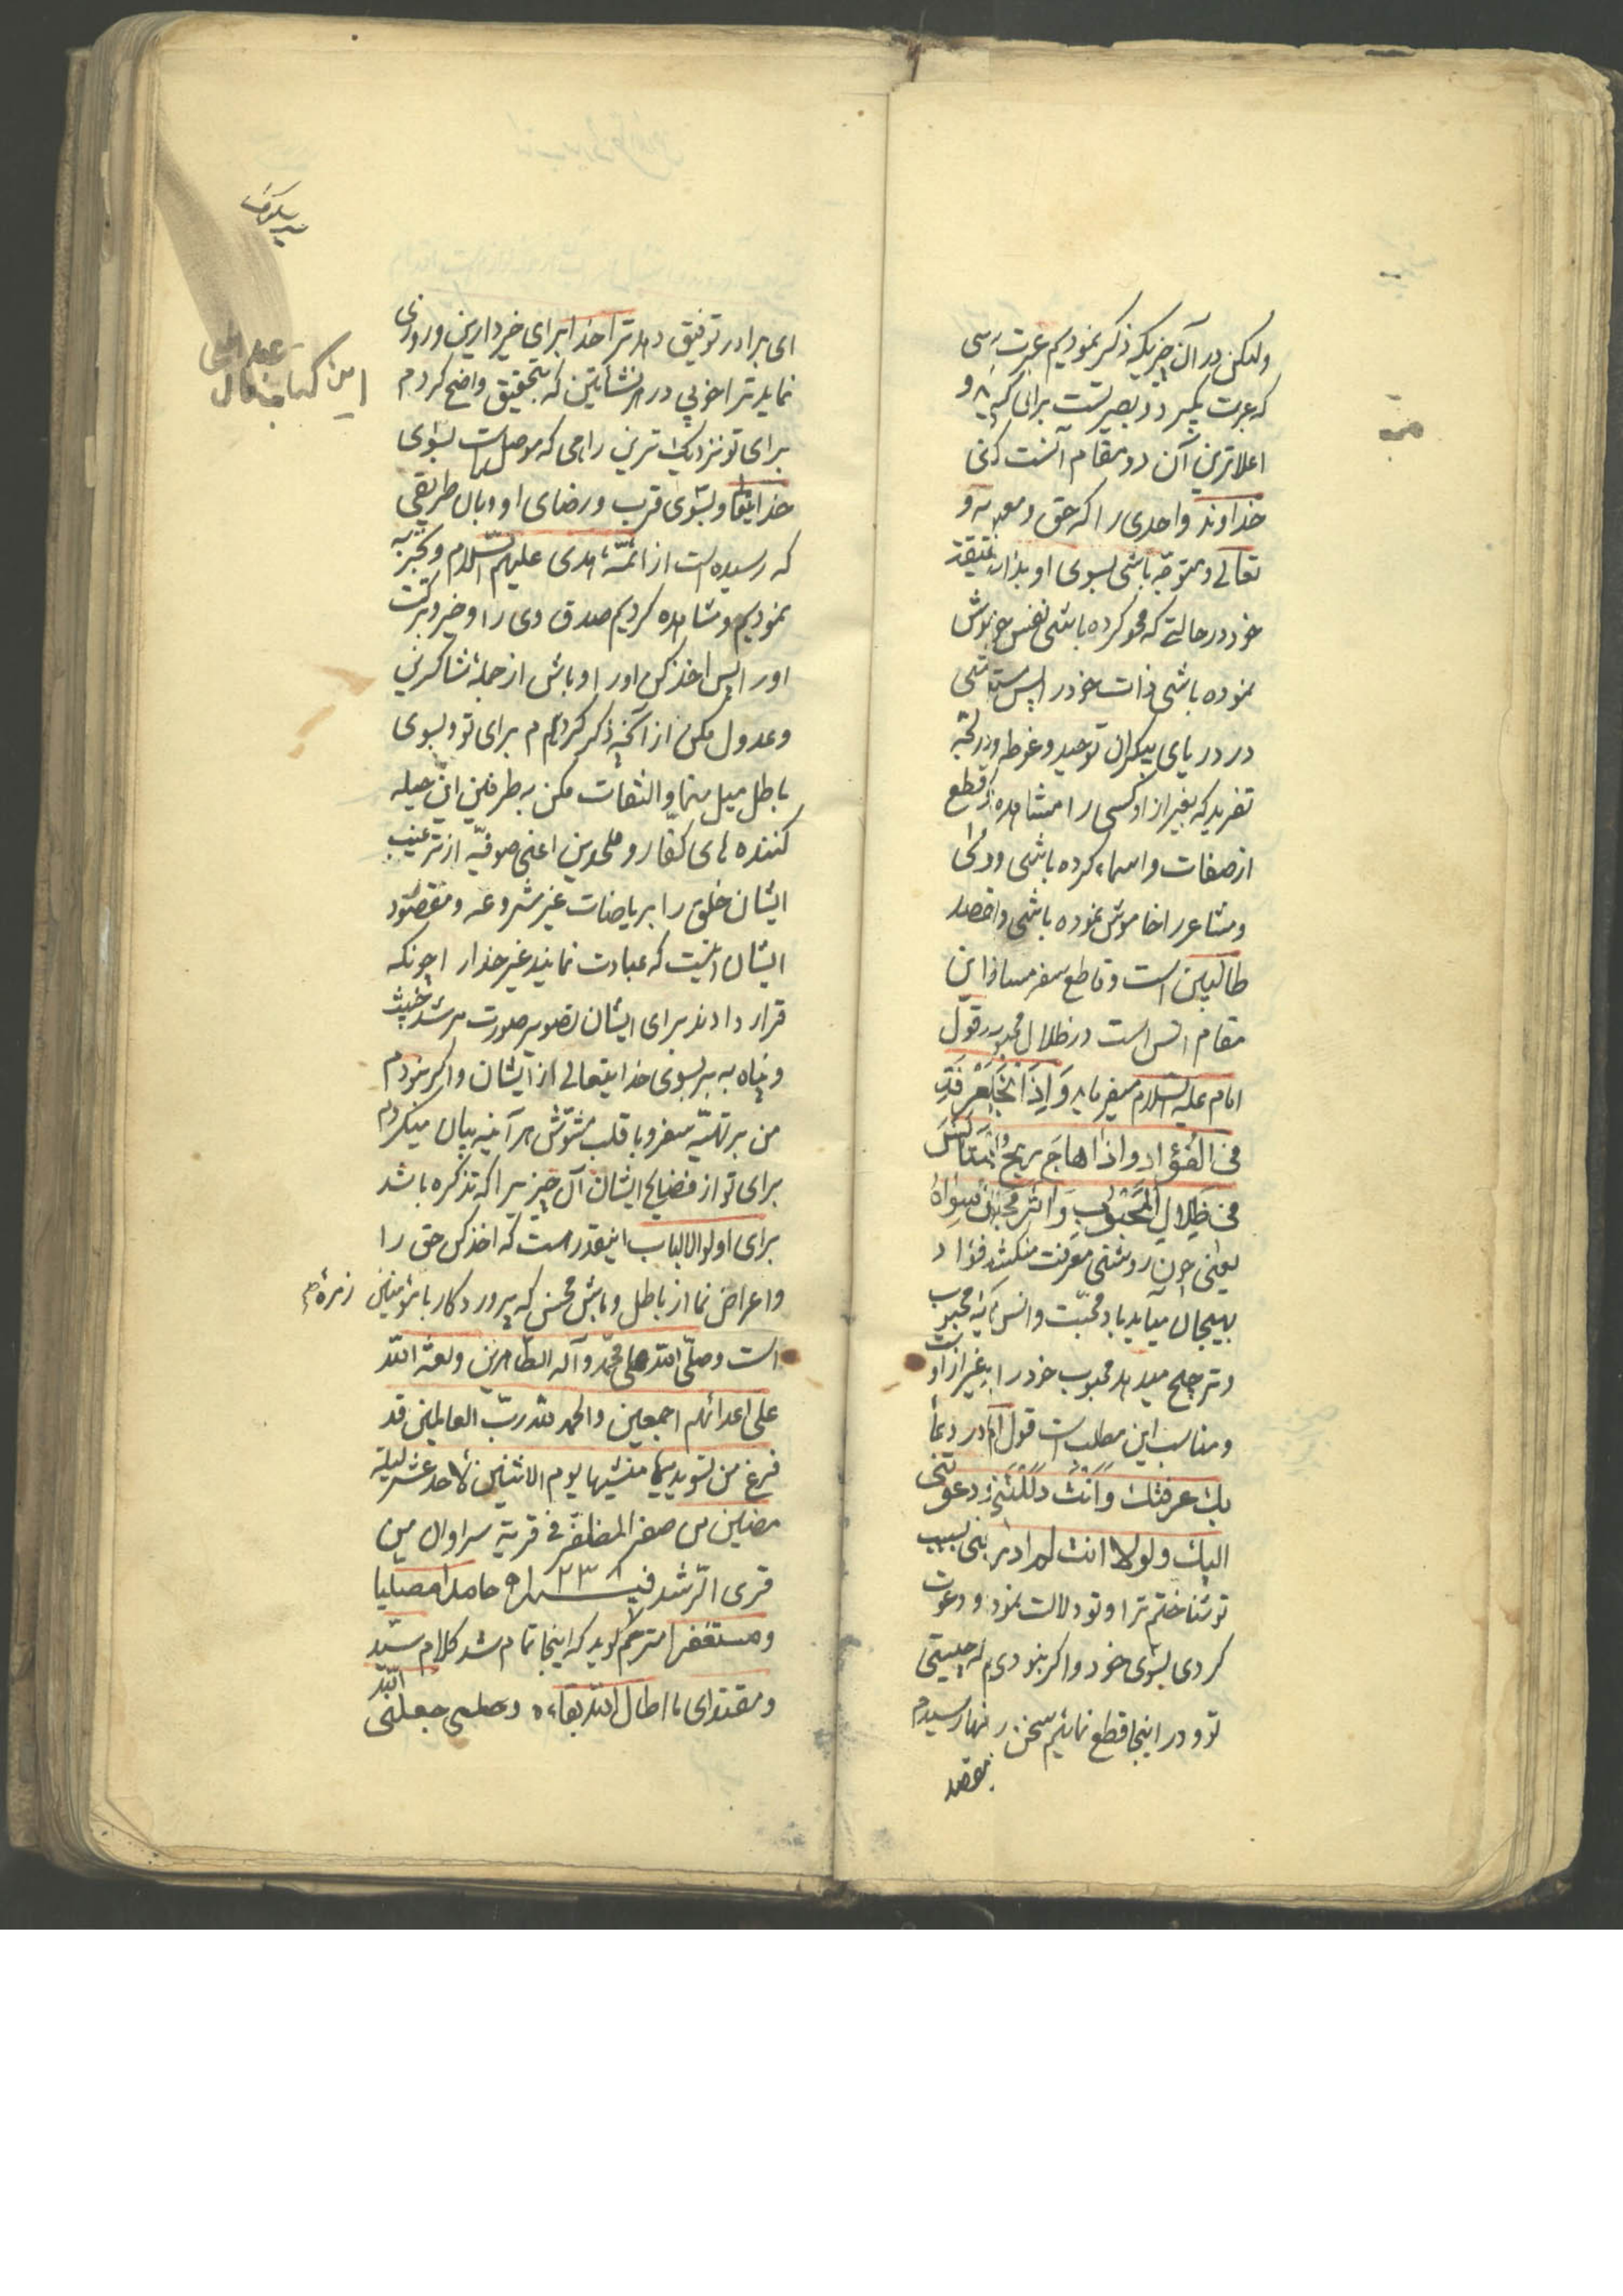 ولیکن در آن چیزیکه ذکر نمودیم عبرت
که عبرت بگیرد و بصیرتست برای کسی
اعلاترین آن دو مقام آنست که
خداوند واحدی را که حق و معبود
تعالی و متوجه باشی بسوی او بذات
خود در حالتی که محو کرده باشی نفس خود
نموده باشی ذات خود را پس
در دریای بیکران توحید و غوطه ور در لجه
تفرید که بغیر از او کسی را مشاهده قطع
از صفات و اسماء کرده باشی و
و مشاعر را خاموش نموده باشی و اقصد
طالبین است و قاطع سفر مسافر این
مقام انس است در ظلال محبوب قول
امام علیه السلام میفرماید وَ اِذَا
فی الفؤاد و اذا هاج ریح
فی ظِلالِ المَحبُوب وَ اثر محبوبه
یعنی چون روشنی معرفت منکشف فؤاد
بهیجان میآید باد محبت و انس محبوب
و ترجیح میدهد محبوب خود را بغیر از او
و مناسب این مطلب است قول امام در دعا
بك عرفتك وَاَنْتَ دَلَلْتَنی و دعوتنی
الیك و لولا انت لم ادر یعنی بسبب
تو شناختم ترا و تو دلالت نمودی و دعوت
کردی بسوی خود و اگر نبودی چیستی
تو و در اینجا قطع نمائیم سخن را رسیدم
بمقصد
ای برادر توفیق دهد ترا خدا برای خیر دارین و روزی
نماید ترا خوبی در هر نشأتین که بتحقیق واضح کردم
برای تو نزدیکترین راهی که موصل است بسوی
خدایتعالی و بسوی قرب و رضای او و بال طریقی
که رسیده است از ائمّهٔ هدی علیهم السلام و تجربه
نمودیم و مشاهده کردیم صدق وی را و خیر و برکت
او را پس اخذ کن او را و باش از جملهٔ شاکرین
و عدول مکن از آنچه ذکر کردم برای تو و بسوی
باطل میل منما و التفات مکن به طرف این حیله
کننده های کفار و ملحدین اعنی صوفیّه از ترغیب
ایشان خلق را بریاضات غیر مشروعه و مقصود
ایشان اینست که عبادت نمایند غیر خدا را چونکه
قرار دادند برای ایشان تصویر صورت مرشد خبیث
و پناه به بر بسوی خدایتعالی از ایشان و اگر نبودم
من بر تهیّه سفر و با قلب مشوّش هر آینه بیان میکردم
برای تو از فضایح ایشان آن چیزیرا که تذکره باشد
برای اولو الالباب اینقدر هست که اخذ کن حق را
و اعراض نما از باطل و باش محسن که پروردگار با مؤمنین زمرهٔ
است و صلّی الله علی محمّد و آله الطّاهرین و لعنة الله
علی اعدائهم اجمعین و الحمد لله ربّ العالمین قد
فرغ من تسویدها منشیها یوم الاثنین لأحد عشر لیلة
مضین من صفر المظفّر فی قریة سراوان من
قری الرّشد فی سنه ۱۲۳۸ حامدا مصلیا
و مستغفرا مترجم گوید که اینجا تمام شد کلام سیّد
و مقتدای ما اطال الله بقاءه و جعلنی الله
این کتاب مال